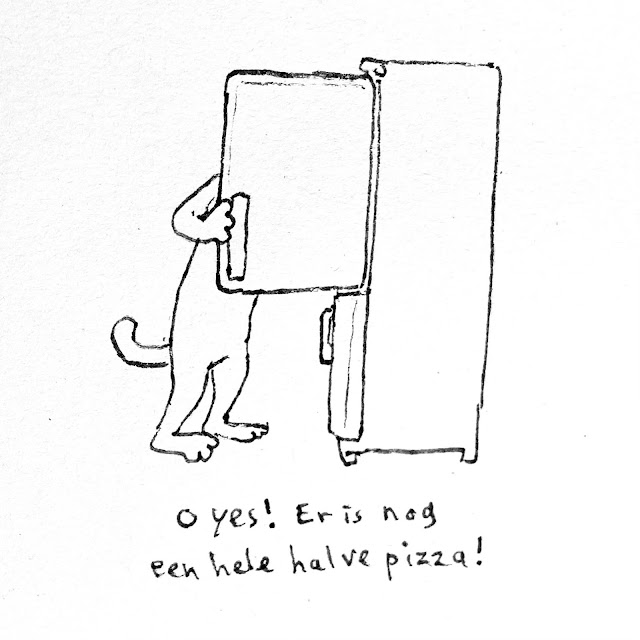 O yes! Er is nog
een hele halve pizza!